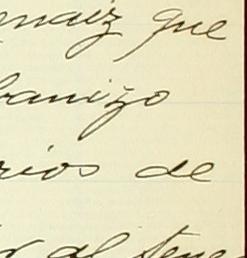 maiz que
banizo
rios de
r al tene